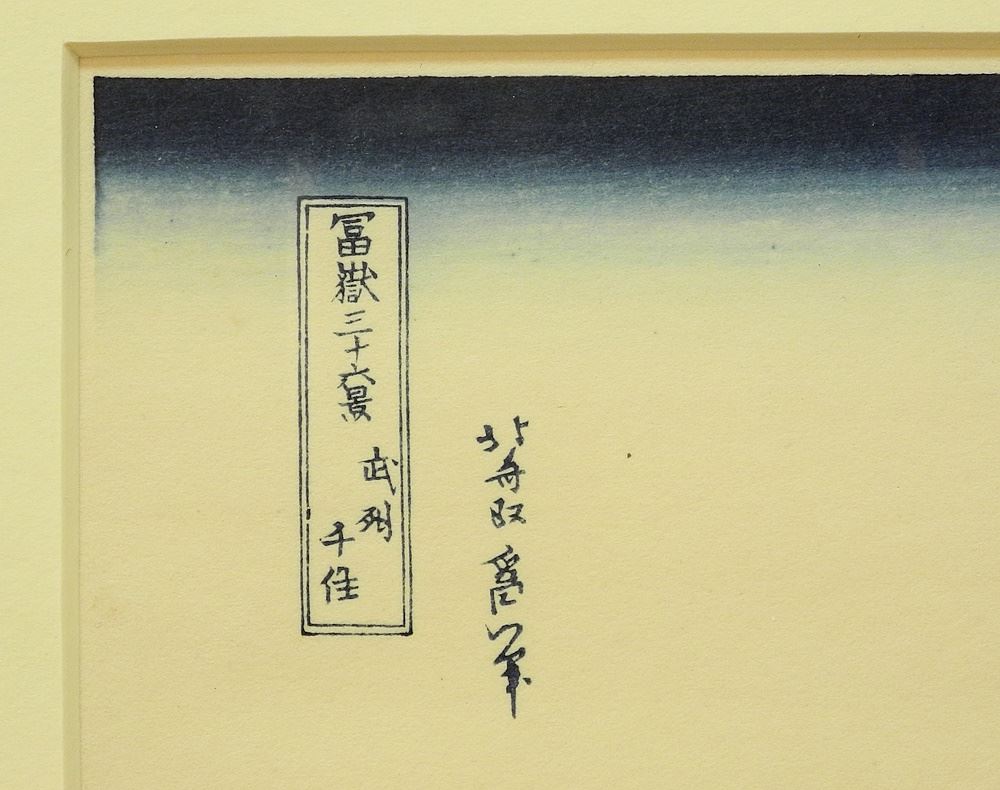 冨嶽三十六景
武州
千住
北斎改為一筆